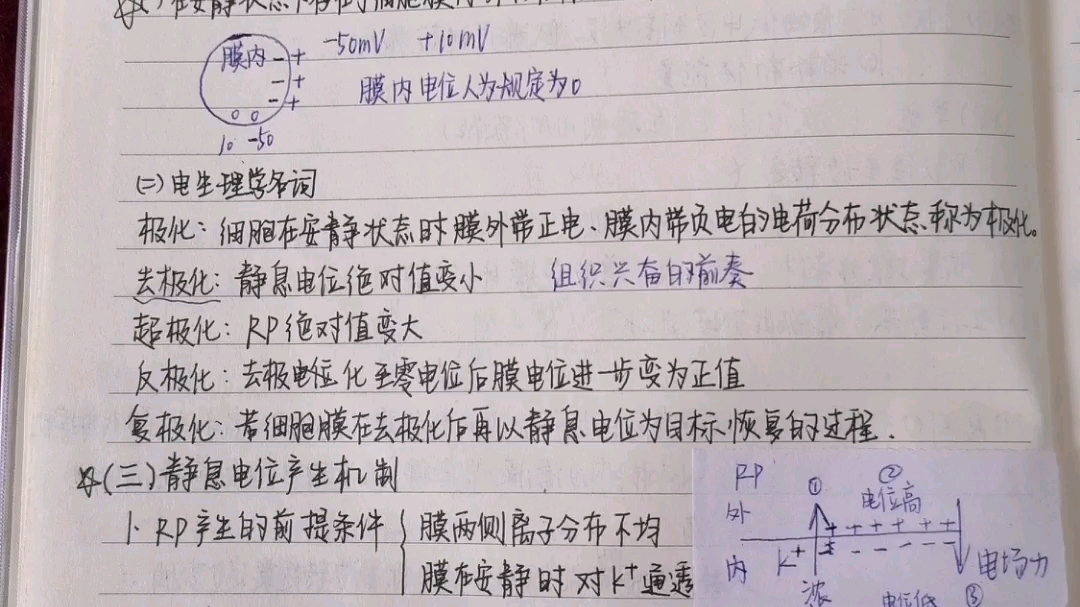 在安静状态下存在于细胞膜内
膜内 - + -50mV +10mV
- + 膜内电位人为规定为0
- +
0 0
10 -50
(二) 电生理学名词
极化: 细胞在安静状态时膜外带正电、膜内带负电的电荷分布状态称为极化。
去极化: 静息电位绝对值变小 组织兴奋的前奏
超极化: RP绝对值变大
反极化: 去极电位化至零电位后膜电位进一步变为正值
复极化: 若细胞膜在去极化后再以静息电位为目标恢复的过程.
(三) 静息电位产生机制
1. RP产生的前提条件 { 膜两侧离子分布不均
膜在安静时对K+通透
RP ① ② 电位高
外 + + + + + +
内 K+ - - - - - 电场力
浓 电位低 ③